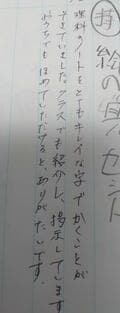 持 絵の具セット
理科のノートをとてもキレイな字でかくことが
できていました。クラスでも紹介し、掲示しています
おうちでもほめていただけると、ありがたいです。